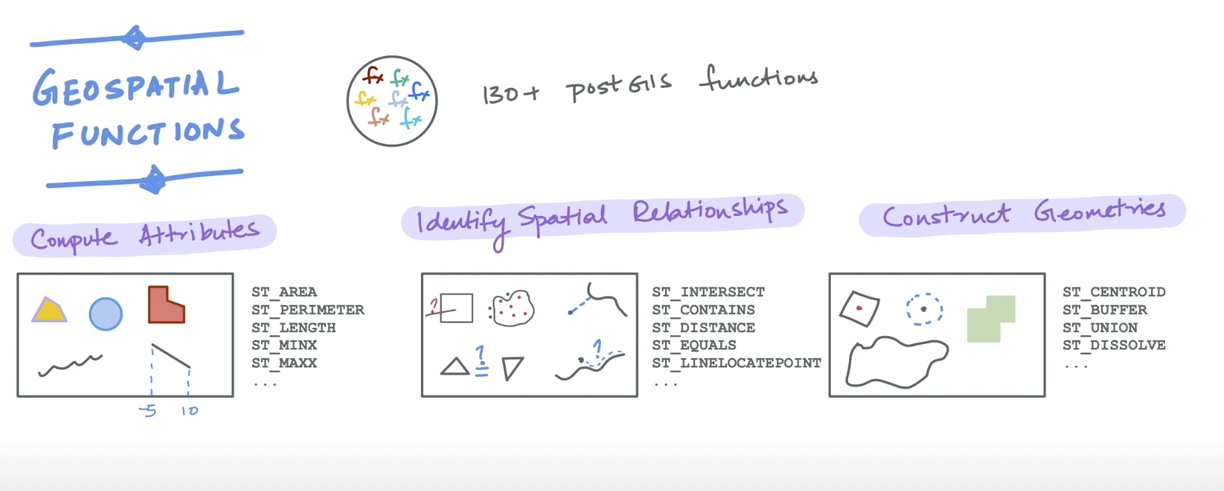 GEOSPATIAL
FUNCTIONS
fx fx
fx fx fx
fx fx
130+ postGIS functions
Compute Attributes
ST_AREA
ST_PERIMETER
ST_LENGTH
ST_MINX
ST_MAXX
...
-5 10
Identify Spatial Relationships
?
?
=
?
ST_INTERSECT
ST_CONTAINS
ST_DISTANCE
ST_EQUALS
ST_LINELOCATEPOINT
...
Construct Geometries
ST_CENTROID
ST_BUFFER
ST_UNION
ST_DISSOLVE
...